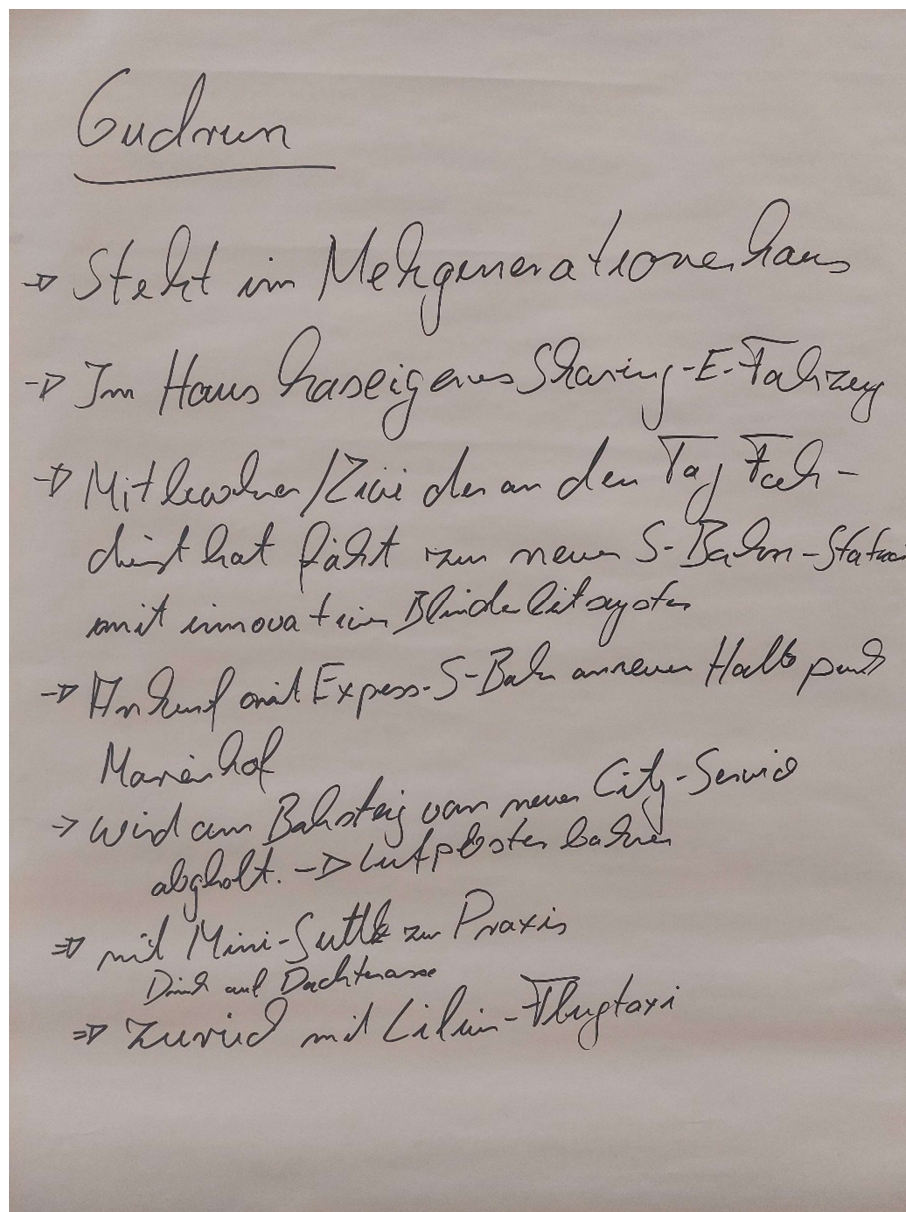 Gudrun
→ Steht im Mehrgenerationenhaus
→ Im Haus hauseigenes Sharing-E-Fahrzeug
→ Mitbewohner/Zivi der an dem Tag Fah-
dienst hat fährt zur neuen S-Bahn-Station
mit innovativen Blindenleitsystem
→ Ankunft mit Express-S-Bahn am neuen Haltepunkt
Marienhof
→ wird am Bahnsteig vom neuen City-Service
abgeholt. →
⇒ mit Mini-Suttle zur Praxis
Drink auf Dachterrasse
⇒ Zurück mit Lilium-Flugtaxi